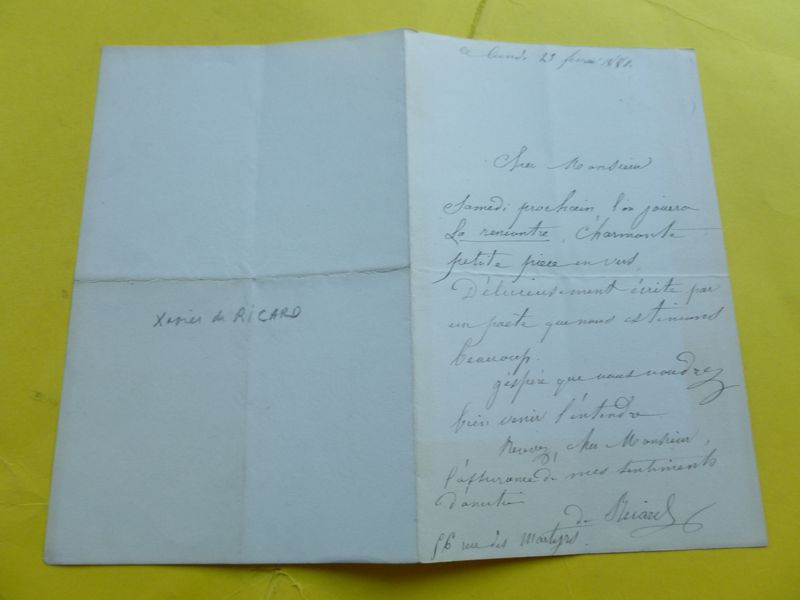 Xavier de RICARD
ce lundi 23 février 1880.
Cher Monsieur
Samedi prochain l'on jouera
La rencontre, Charmante
petite pièce en vers.
Délicieusement écrite par
un poète que nous estimons
beaucoup.
J'espère que vous voudrez
bien venir l'entendre
Recevez, cher Monsieur,
l'assurance de mes sentiments
d'amitié
de Ricard
rue des Martyrs.